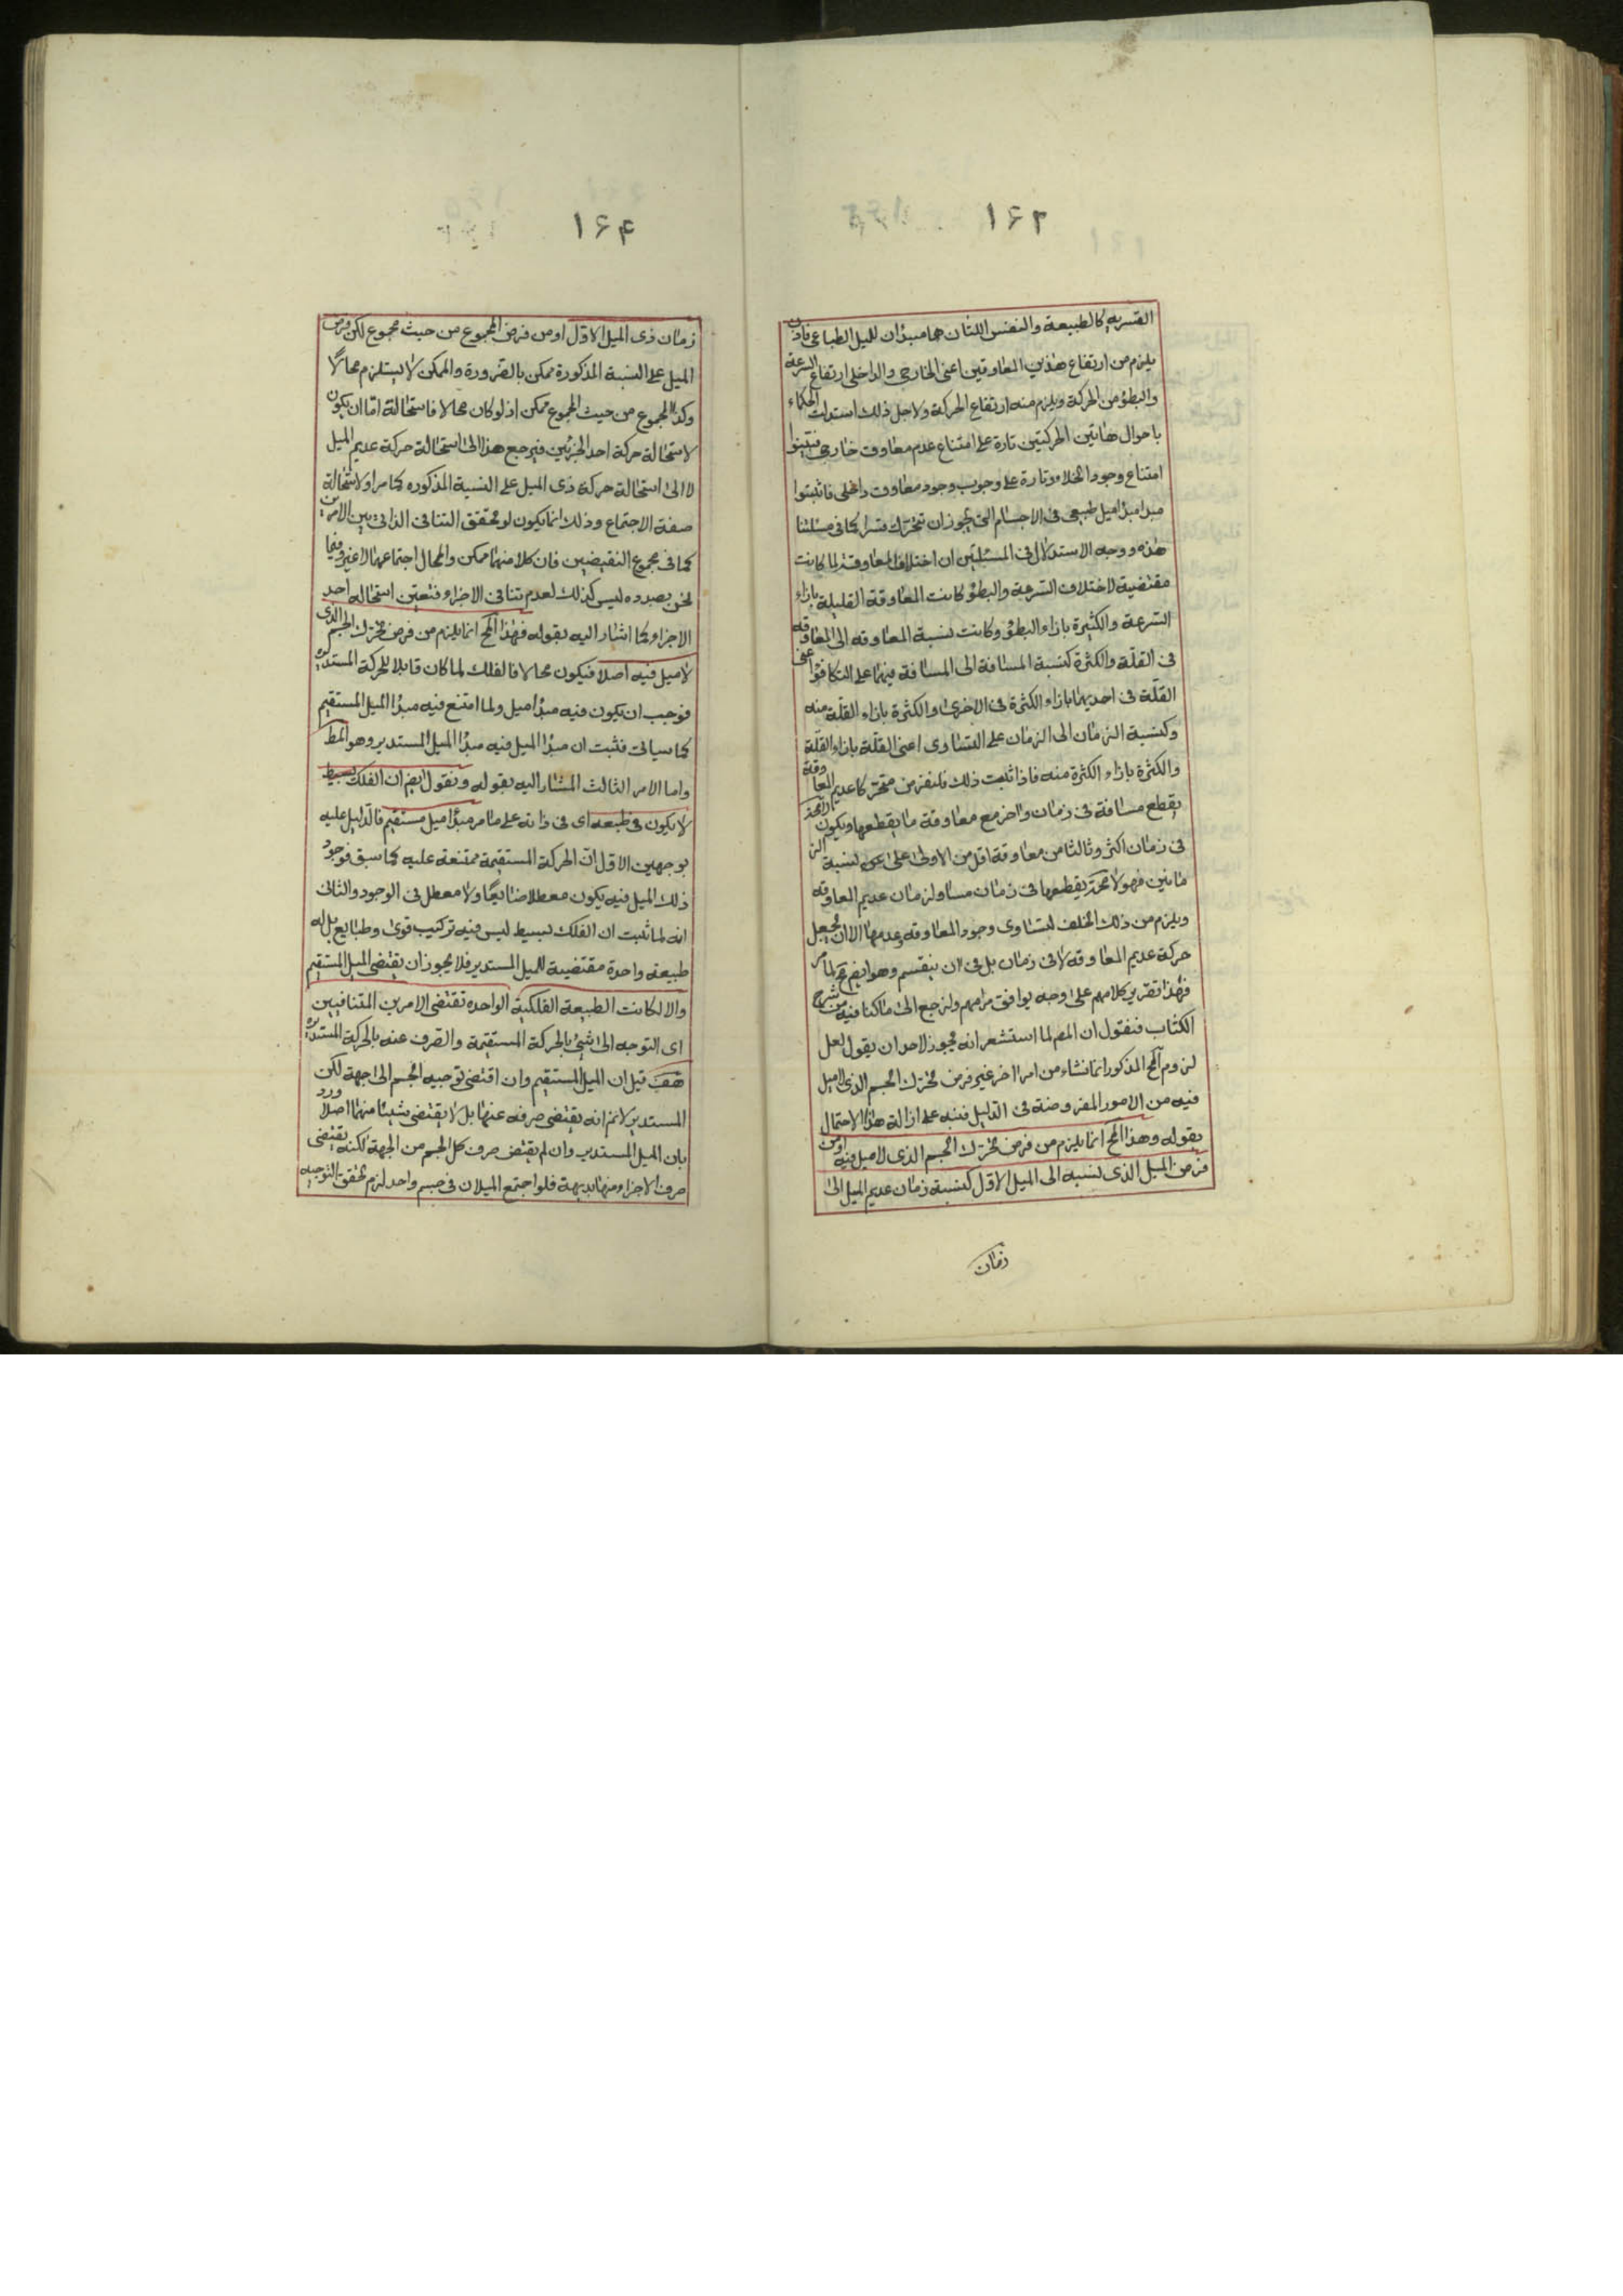 ۱۶۳
القسريه كالطبيعة والنفس اللتان هما مبدؤان للميل الطباعى فاذن
يلزم من ارتفاع هذين المعاوقين اعنى الخارجى والداخلى ارتفاع السرعة
والبطؤ من الحركة ويلزم منه ارتفاع الحركة ولاجل ذلك استدلت الحكماء
باحوال هاتين الحركتين تارة على امتناع عدم معاوق خارجى فبينوا
امتناع وجود الخلاء وتارة على وجوب وجود معاوق داخلى فاثبتوا
مبدأ ميل طبيعى فى الاجسام التى يجوز ان تتحرك قسرا كما فى مسئلتنا
هذه ووجه الاستدلال فى المسئلتين ان اختلاف المعاوقة لما كانت
مقتضية لاختلاف السرعة والبطؤ كانت المعاوقة القليلة بازاء
السرعة والكثيرة بازاء البطؤ وكانت نسبة المعاوقه الى المعاوقه
فى القلّة والكثرة كنسبة المسافة الى المسافة فيهما على التكافؤ اعنى
القلّة فى احديهما بازاء الكثرة فى الاخرى والكثرة بازاء القلة منه
وكنسبة الزمان الى الزمان على التساوى اعنى القلّة بازاء القلّة
والكثرة بازاء الكثرة منه فاذا ثبت ذلك فلنفرض متحركا عديم المعاوقة
يقطع مسافة فى زمان واخر مع معاوقة ما يقطعها ويكون
فى زمان اكثر وثالثا مع معاوقة اقل من الاولى على نسبة الز
مانين فهو لا محة يقطعها فى زمان مساو لزمان عديم المعاوقه
ويلزم من ذلك الخلف لتساوى وجود المعاوقه وعدمها الا ان يجعل
حركة عديم المعاوقه لا فى زمان بل فى ان ينقسم وهو ايضا مح لما مر
فهذا تقرير كلامهم على وجه يوافق مرامهم ولنرجع الى ما كنا فيه من شرح
الكتاب فنقول ان المصـ لما استشعر انه يجوز لاحد ان يقول لعل
لزوم المح المذكور انما نشاء من امر اخر غير فرض تحرك الجسم الذى لا ميل
فيه من الامور المفروضة فى الدليل فنبه على ازالة هذا الاحتمال
بقوله وهذا المح انما يلزم من فرض تحرك الجسم الذى لا ميل فيه او من
فرض الميل الذى نسبه الى الميل الاوّل كنسبة زمان عديم الميل الى
زمان
۱۶۴
زمان ذى الميل الاوّل او من فرض المجموع من حيث مجموع لكن فرض
الميل على النسبة المذكورة ممكن بالضرورة والممكن لا يستلزم محالاً
وكذا المجموع من حيث المجموع ممكن اذ لو كان محالا فاستحالة اما ان يكون
لاستحالة حركة احد الجزئين فيرجع هذا الى استحالة حركة عديم الميل
لا الى استحالة حركة ذى الميل على النسبة المذكوره كما مر او لاستحالة
صفة الاجتماع وذلك انما يكون لو تحقق التنافى الذاتى بين الامرين
كما فى مجموع النقيضين فان كلا منهما ممكن والمحال اجتماعهما لا غير وفيما
نحن بصدده ليس كذلك لعدم تنافى الاجزاء فتعين استحاله احد
الاجزاء كما اشار اليه بقوله فهذا المح انما يلزم من فرض تحرك الجسم الذى
لا ميل فيه اصلا فيكون محالا فالفلك لما كان قابلا للحركة المستديره
فوجب ان يكون فيه مبدأ ميل ولما امتنع فيه مبدأ الميل المستقيم
كما سياتى فثبت ان مبدأ الميل فيه مبدأ الميل المستدير وهو المط
واما الامر الثالث المشار اليه بقوله ونقول ايضا ان الفلك بسيط
لا يكون فى طبعه اى فى ذاته على ما مر مبدأ ميل مستقيم فالدليل عليه
بوجهين الاول انّ الحركة المستقيمة ممتنعة عليه كما سبق فوجود
ذلك الميل فيه يكون معطلا ضايعًا ولا معطل فى الوجود والثانى
انه لما ثبت ان الفلك بسيط ليس فيه تركيب قوى وطبايع بل له
طبيعة واحدة مقتضية للميل المستدير فلا يجوز ان يقتضى الميل المستقيم
والا لكانت الطبيعة الفلكية الواحده تقتضى الامرين المتنافيين
اى التوجه الى شئ بالحركة المستقيمة والصرف عنه بالحركة المستديره
هف قيل ان الميل المستقيم وان اقتضى توجيه الجسم الى جهة لكن
المستدير لا نم انه يقتضى صرفه عنها بل لا يقتضى شيئا منهما اصلا ورد
بان الميل المستدير وان لم يقتض صرف كل الجسم من الجهة لكنه يقتضى
صرف الاجزاء منها بديهة فلو اجتمع الميلان فى جسم واحد لزم تحقق التوجيه